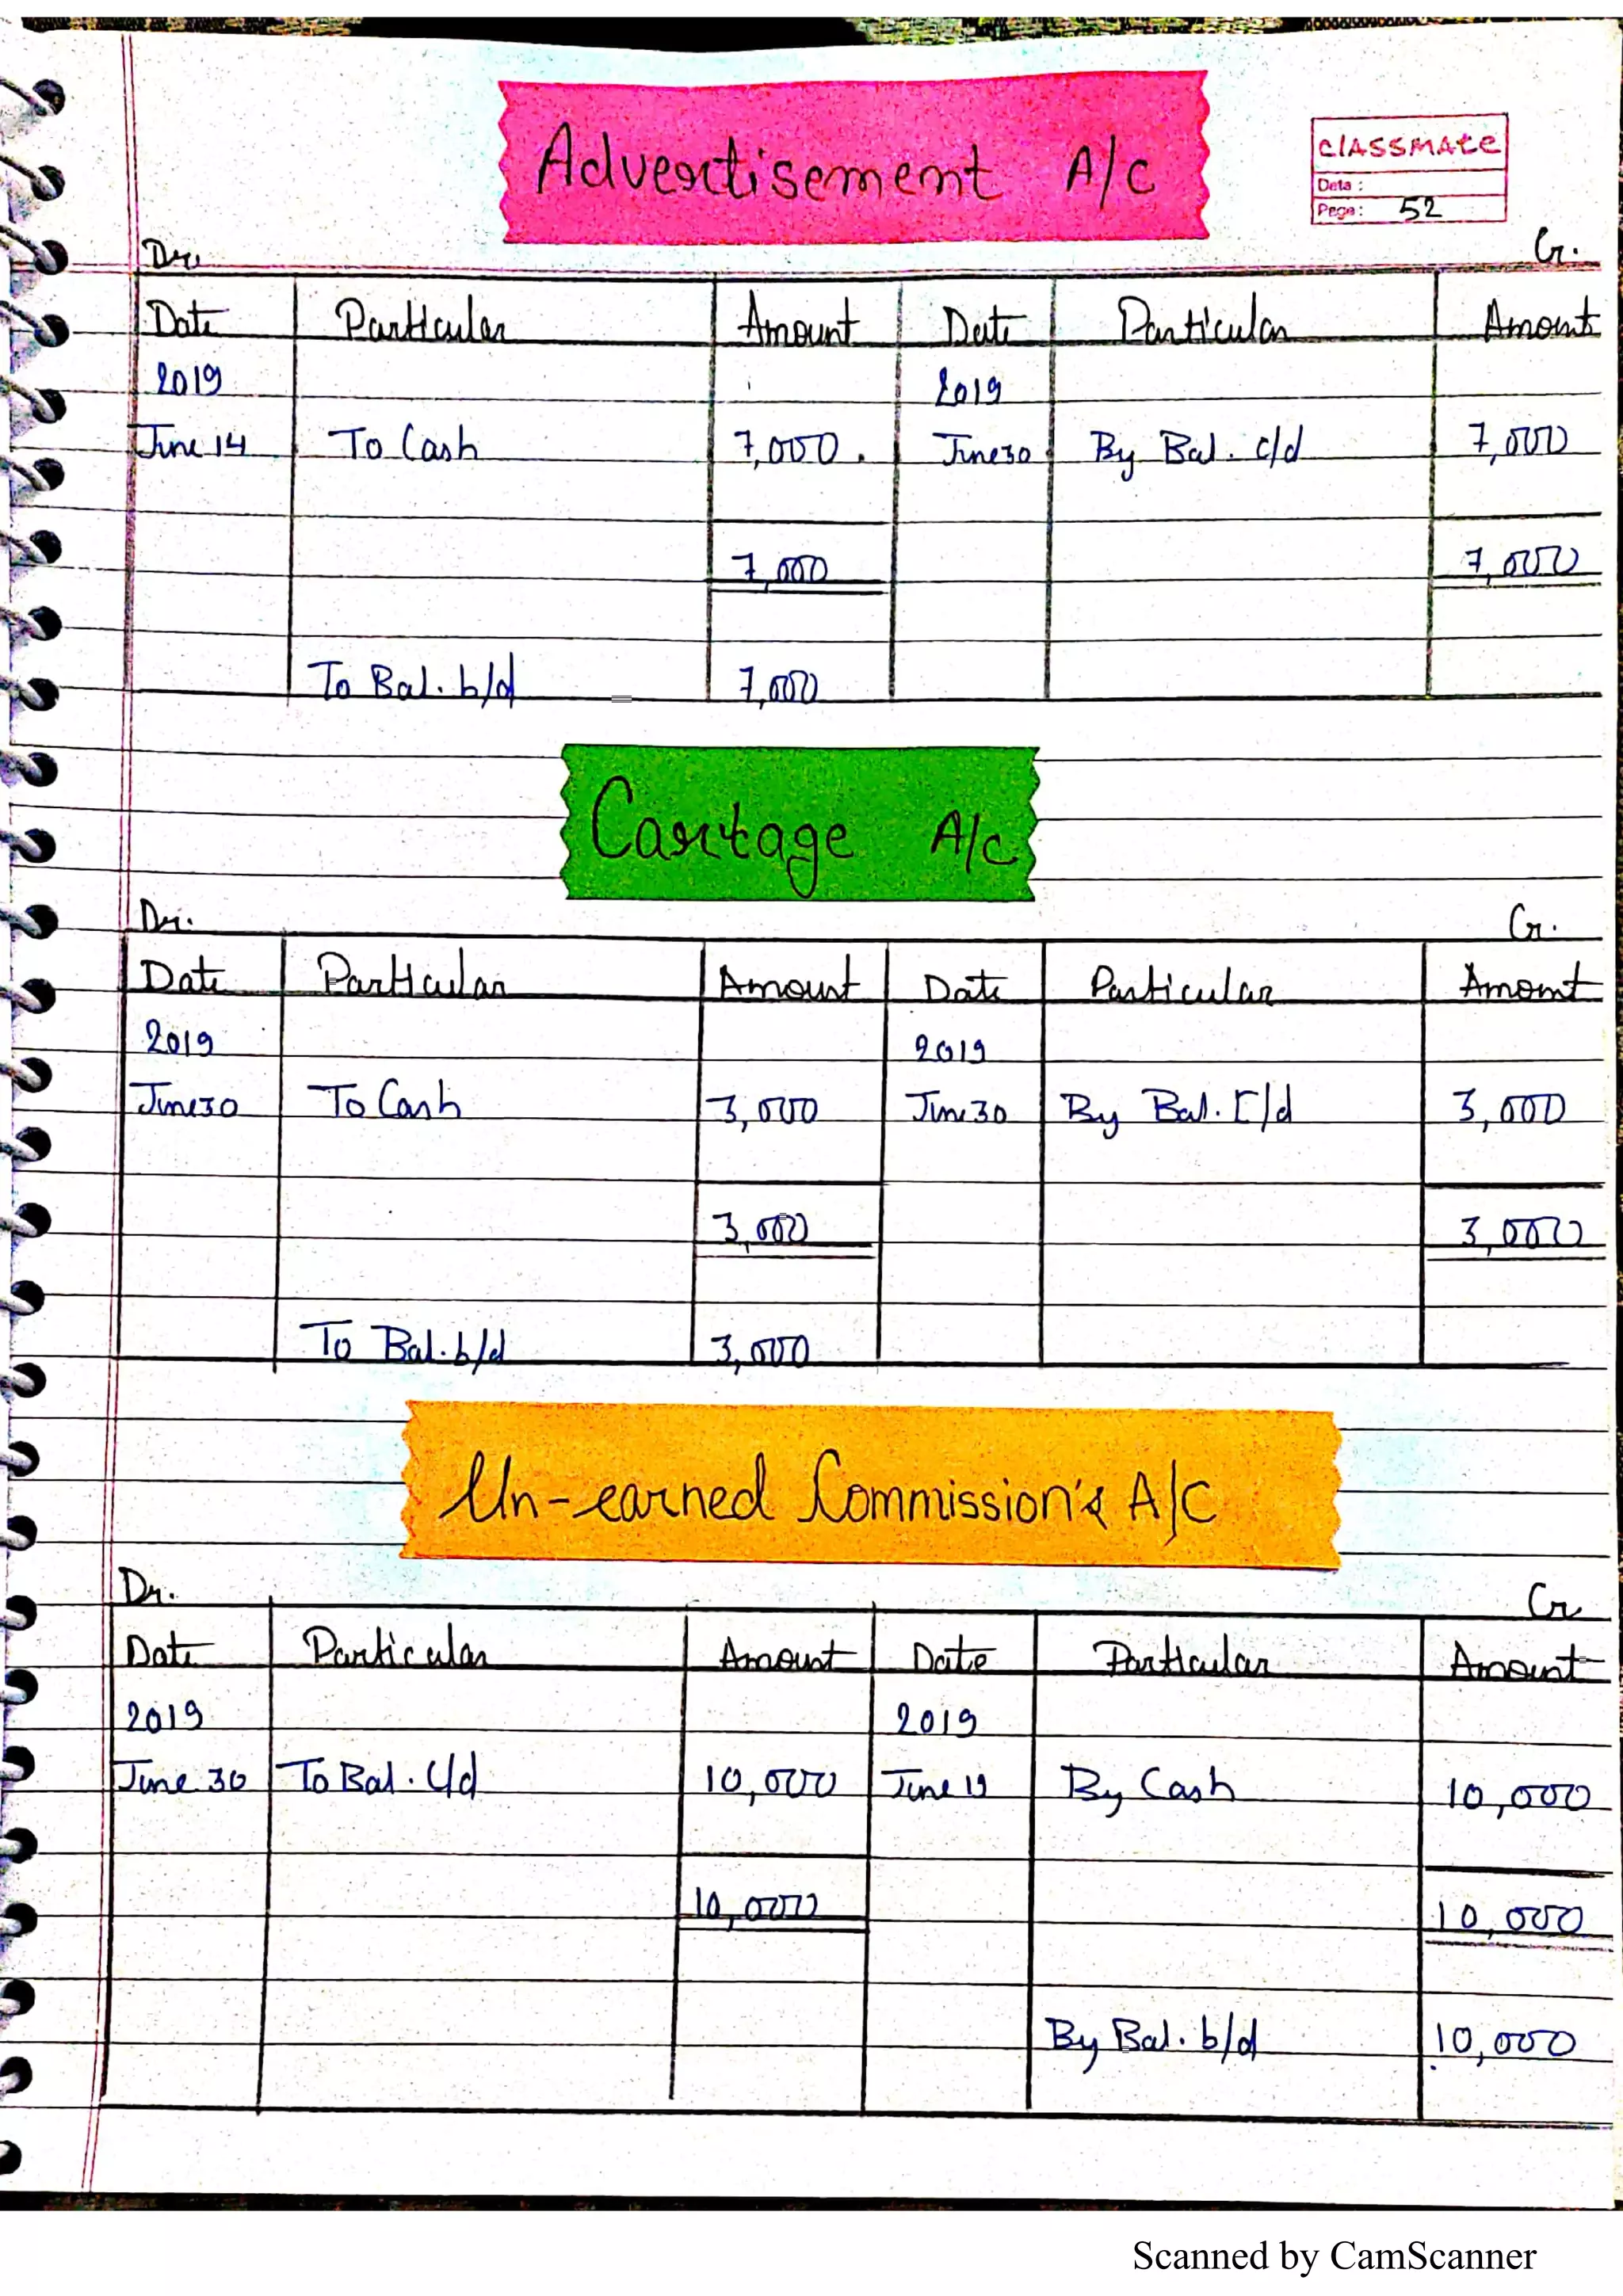 Advertisement A/C
CLASSMATE
Date :
Page: 52
Dr. Cr.
Date Particular Amount Date Particular Amount
2019 2019
June 14 To Cash 7,000 June 30 By Bal. c/d 7,000
7,000 7,000
To Bal. b/d 7,000
Cartage A/c
Dr. Cr.
Date Particular Amount Date Particular Amount
2019 2019
June 30 To Cash 3,000 June 30 By Bal. C/d 3,000
3,000 3,000
To Bal. b/d 3,000
Un-earned Commission's A/C
Dr. Cr
Date Particular Amount Date Particular Amount
2019 2019
June 30 To Bal. C/d 10,000 June 19 By Cash 10,000
10,000 10,000
By Bal. b/d 10,000
Scanned by CamScanner